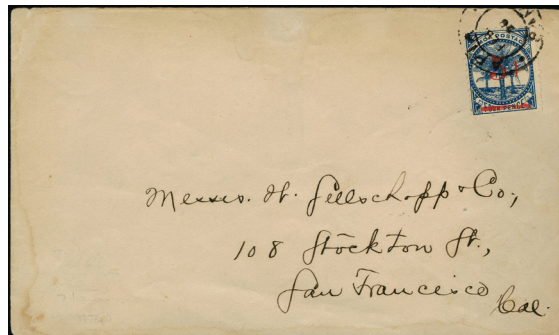 Messrs. W. Sellschopp & Co.,
108 Stockton St.,
San Francisco
Cal.